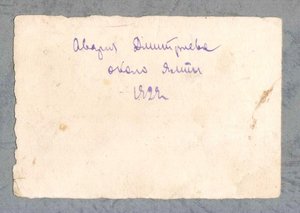 Авария Дмитриева
около Ялты
1929